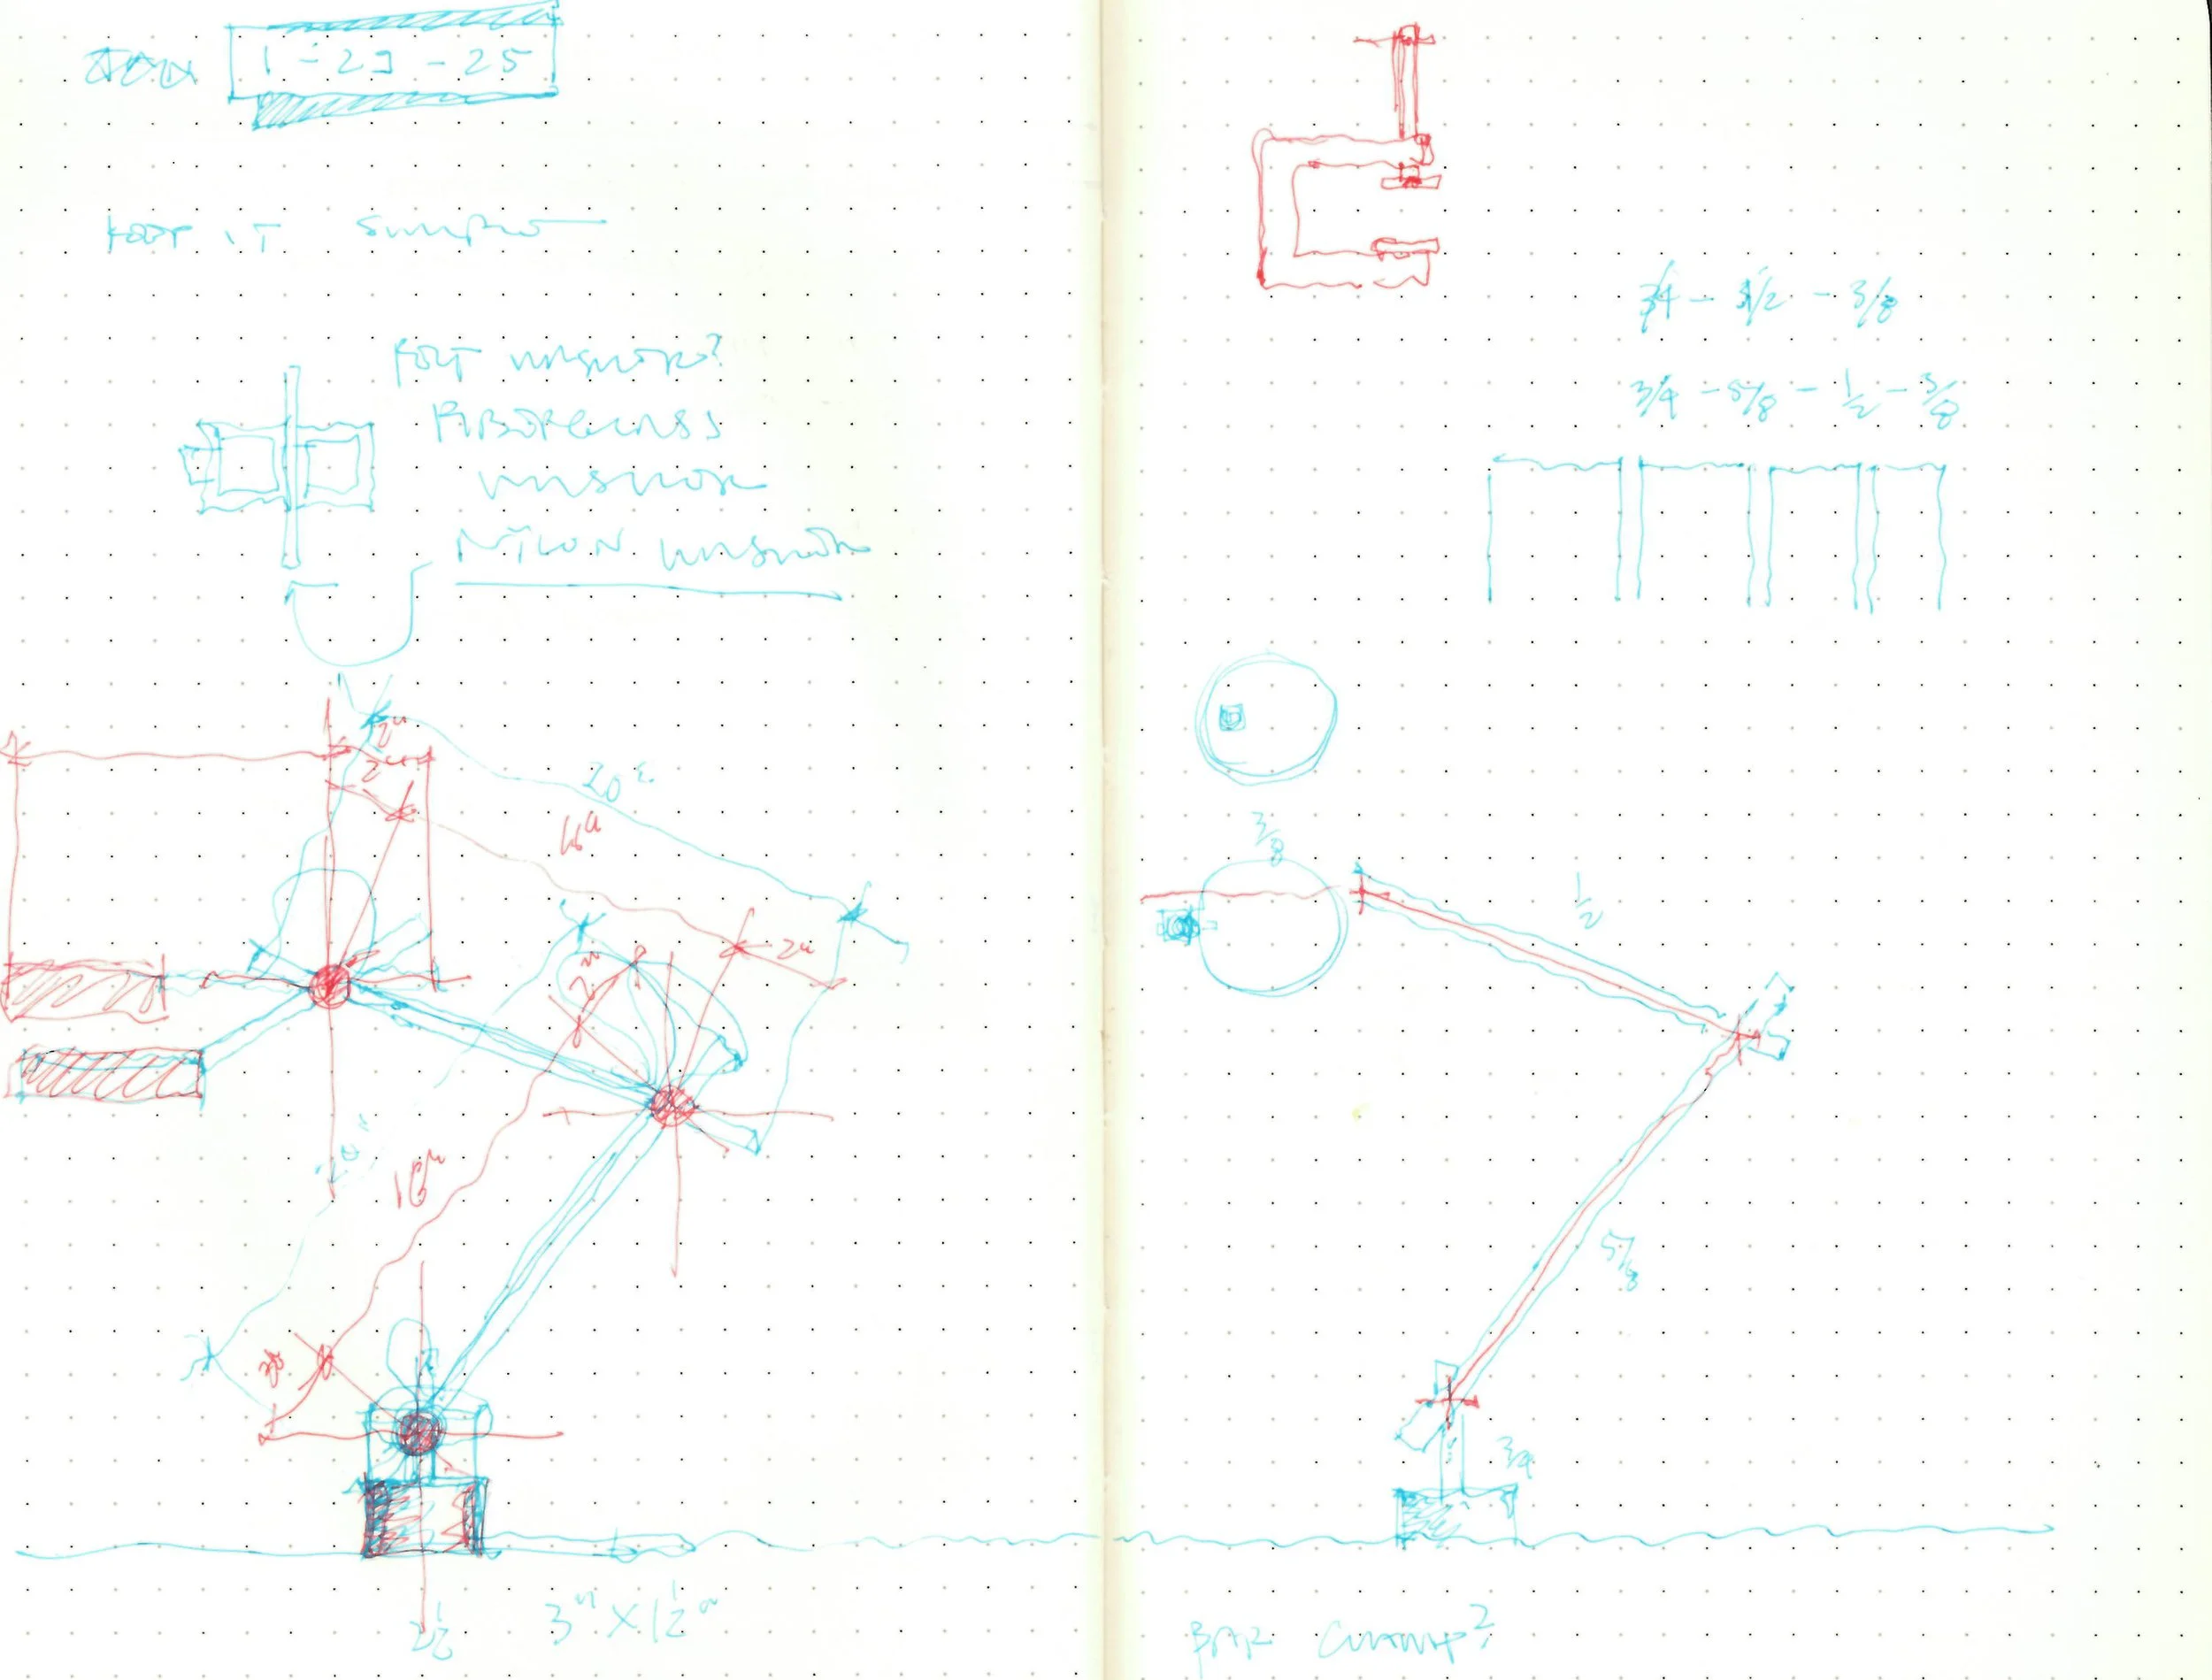 1-23-25
KEEP IT SIMPLE
FELT WASHER?
FIBERGLASS
WASHER
NYLON WASHER
2"
2"
20"
16"
2"
2"
20"
16"
2"
3" X 1 1/2"
3/4 - 1/2 - 3/8
3/4 - 5/8 - 1/2 - 3/8
3/8
1/2
5/8
3/4
BAR CLAMP?